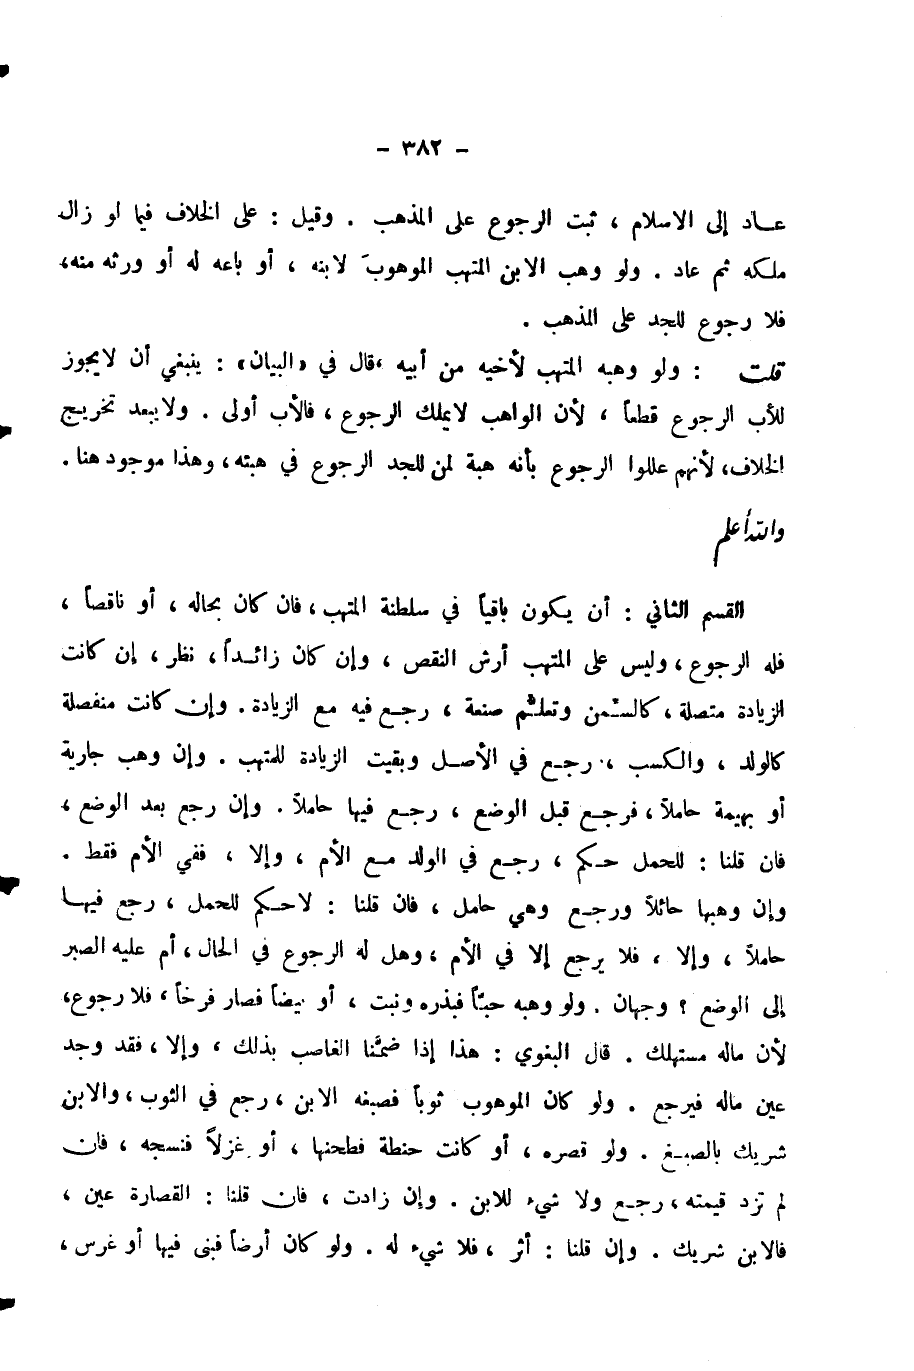 - ٣٨٢ -
عـاد إلى الاسلام ، ثبت الرجوع على المذهب . وقيل : على الخلاف فيما لو زال
ملكه ثم عاد . ولو وهب الابن المتهب الموهوبَ لابنه ، أو باعه له أو ورثه منه،
فلا رجوع للجد على المذهب .
قلت : ولو وهبه المتهب لأخيه من أبيه ،قال في «البيان» : ينبغي أن لايجوز
للأب الرجوع قطعاً ، لأن الواهب لايملك الرجوع ، فالأب أولى . ولايبعد تخريج
الخلاف، لأنهم عللوا الرجوع بأنه هبة لمن للجد الرجوع في هبته ، وهذا موجود هنا .
والله أعلم
القسم الثاني : أن يكون باقياً في سلطنة المتهب ، فان كان بحاله ، أو ناقصاً ،
فله الرجوع ، وليس على المتهب أرش النقص ، وإن كان زائـداً ، نظر ، إن كانت
الزيادة متصلة ، كالسِّمن وتعلُّم صنعة ، رجـع فيه مع الزيادة . وإن كانت منفصلة
كالولد ، والكسب ، رجـع في الأصـل وبقيت الزيادة للمتهب . وإن وهب جارية
أو بهيمة حاملاً ، فرجـع قبل الوضع ، رجـع فيها حاملاً . وإن رجع بعد الوضع ،
فان قلنا : للحمل حـكم ، رجـع في الولد مـع الأم ، وإلا ، ففي الأم فقط .
وإن وهبها حائلاً ورجـع وهي حامل ، فان قلنا : لاحـكم للحمل ، رجع فيهـا
حاملاً ، وإلا ، فلا يرجع إلا في الأم ، وهل له الرجوع في الحال ، أم عليه الصبر
إلى الوضع ؟ وجهان . ولو وهبه حبّاً فبذره ونبت ، أو بيضاً فصار فرخاً ، فلا رجوع،
لأن ماله مستهلك . قال البغوي : هذا إذا ضمَّنا الغاصب بذلك ، وإلا ، فقد وجد
عين ماله فيرجع . ولو كان الموهوب ثوباً فصبغه الابن ، رجع في الثوب ، والابن
شريك بالصبـغ . ولو قصره ، أو كانت حنطة فطحنها ، أو غزلاً فنسجه ، فان
لم تزد قيمته ، رجـع ولا شيء للابن . وإن زادت ، فان قلنا : القصارة عين ،
فالابن شريك . وإن قلنا : أثر ، فلا شيء له . ولو كان أرضاً فبنى فيها أو غرس ،